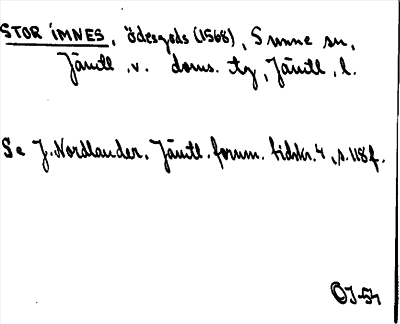 STOR IMNES, ödesgods (1568), Sunne sn,
Jämtl. v. doms. tg, Jämtl. l.
Se J. Nordlander, Jämtl. fornm. tidskr. 4, s. 118 f.
OJ-54